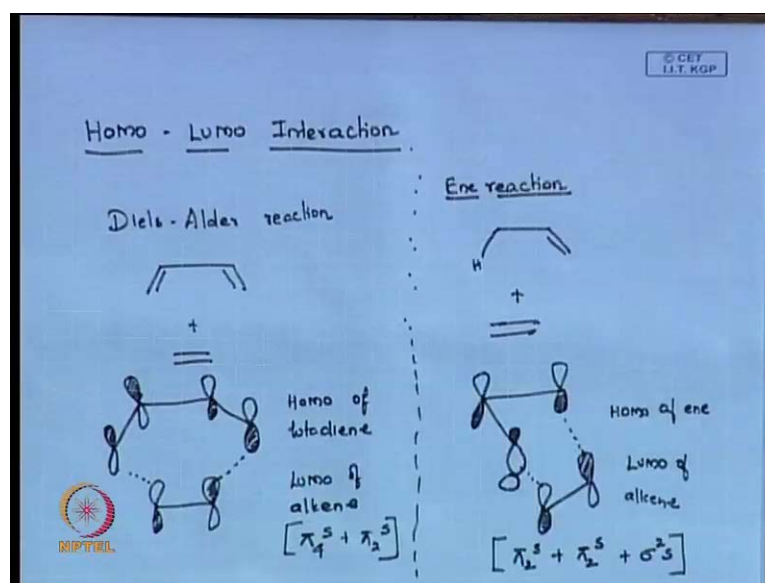 © CET
I.I.T. KGP
Homo - Lumo Interaction.
Diels-Alder reaction
+
Homo of
butadiene
Lumo of
alkene
[π₄ˢ + π₂ˢ]
Ene reaction
H
+
Homo of ene
Lumo of
alkene
[π₂ˢ + π₂ˢ + σ²s]
NPTEL